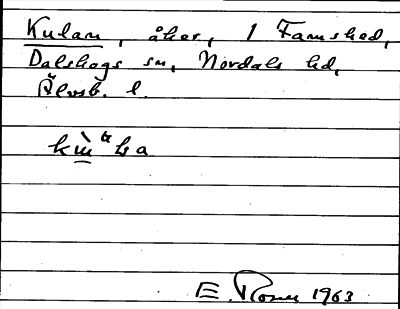 Kulan, åker, 1 Famshed,
Dalskogs sn, Nordals hd,
Älvsb. l.
E. Rosén 1963